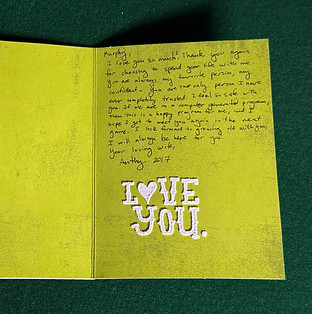 Murphy,
I love you so much! Thank you again
for choosing to spend your life with me
You are always, my favorite person, my
confidant. You are the only person I have
ever completely trusted. I feel so safe with
you. If we are in a computer generated program,
then this is a happy program for me, and I
hope I get to meet you again in the next
game. I look forward to growing old with you,
I will always be here for you
Your loving wife,
2017
LOVE
YOU.